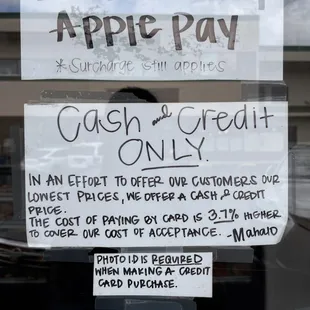 Apple Pay
*Surcharge still applies
Cash and Credit
ONLY.
IN AN EFFORT TO OFFER OUR CUSTOMERS OUR
LOWEST PRICES, WE OFFER A CASH & CREDIT
PRICE.
THE COST OF PAYING BY CARD IS 3.7% HIGHER
TO COVER OUR COST OF ACCEPTANCE. -Mahalo
PHOTO ID IS REQUIRED
WHEN MAKING A CREDIT
CARD PURCHASE.